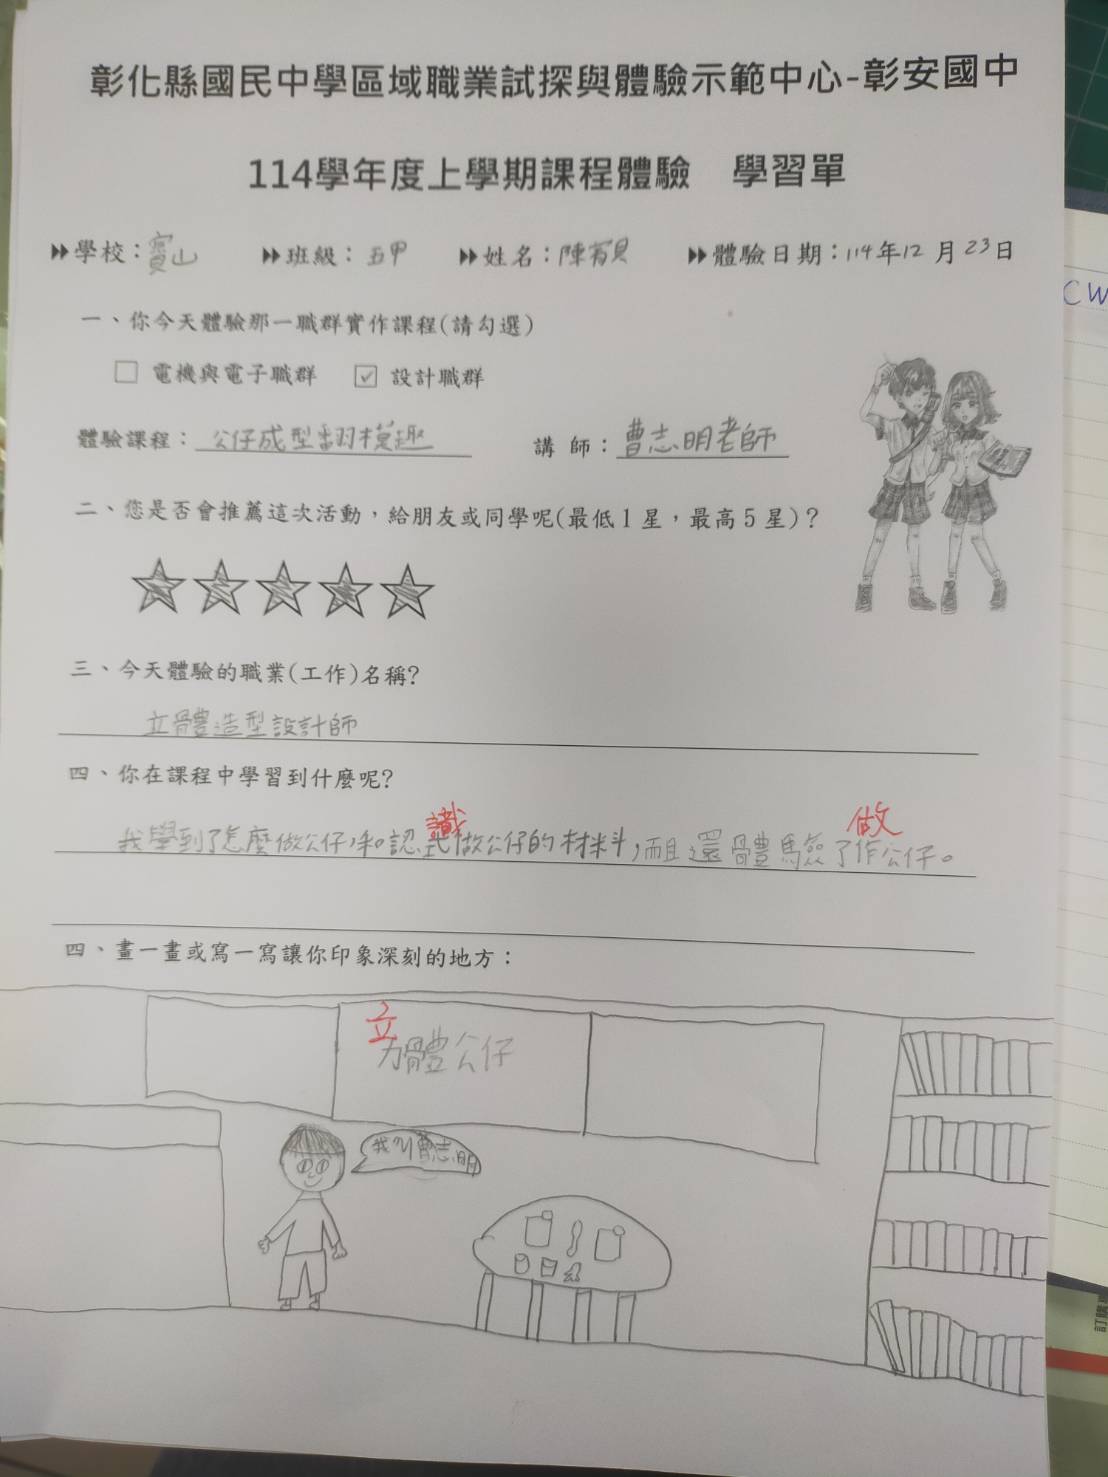 彰化縣國民中學區域職業試探與體驗示範中心-彰安國中
114學年度上學期課程體驗 學習單
學校：寶山 班級：五甲 姓名：陳 體驗日期：114年12月23日
一、你今天體驗那一職群實作課程(請勾選)
□ 電機與電子職群 ☑ 設計職群
體驗課程：公仔成型翻模趣 講 師：曹志明老師
二、您是否會推薦這次活動，給朋友或同學呢(最低1星，最高5星)？
三、今天體驗的職業(工作)名稱?
立體造型設計師
四、你在課程中學習到什麼呢?
識 做
我學到了怎麼做公仔，和認式做公仔的材料，而且還體驗了作公仔。
四、畫一畫或寫一寫讓你印象深刻的地方：
立
力體公仔
我叫曹志明
CW
訂購